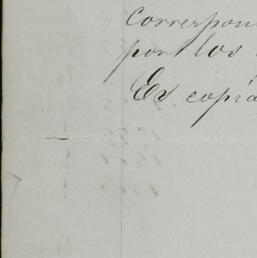 correspon
por los
Es copia